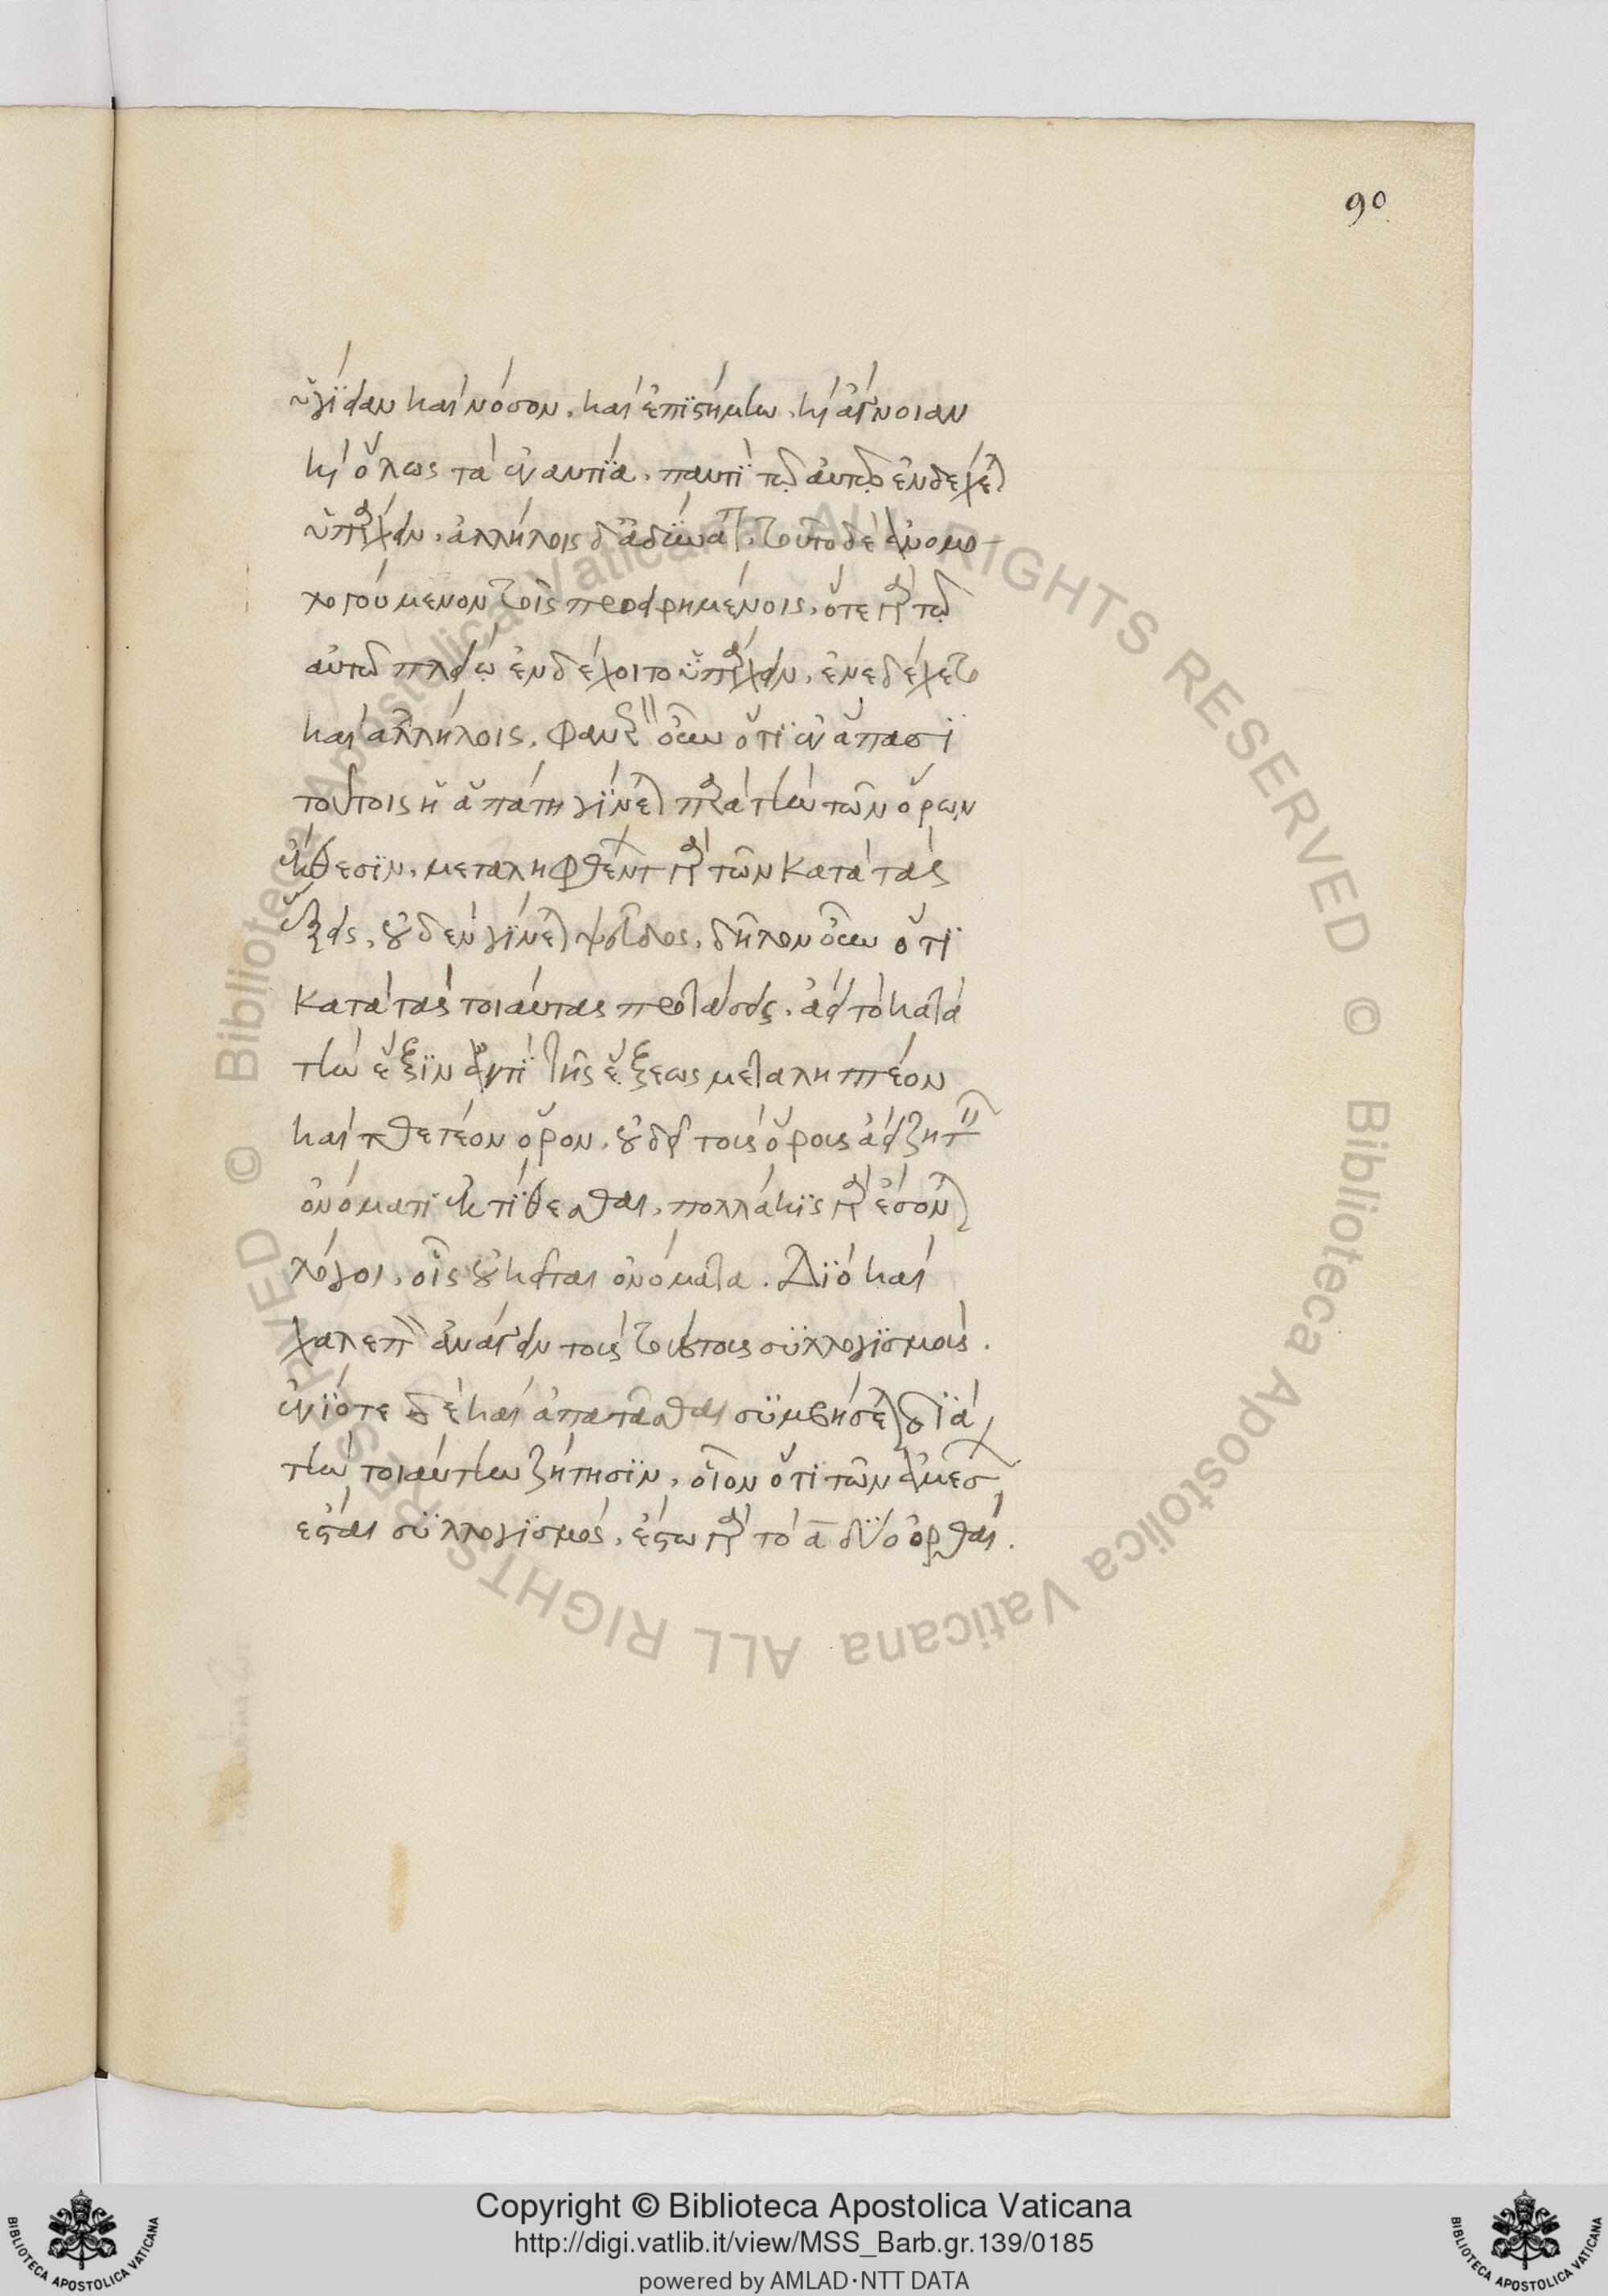 90
ὑγίειαν καὶ νόσον, καὶ ἐπιστήμην, κ(αὶ) ἄγνοιαν
κ(αὶ) ὅλως τὰ ἐναντία. παντὶ τῷ αὐτῷ ἐνδέχεται
ὑπάρχειν, ἀλλήλοις δ' ἀδύνατον. τοῦτο δὲ ἀνομο-
λογούμενον τοῖς προειρημένοις, ὅτε γὰρ τῷ
αὐτῷ πλείω ἐνδέχοιτο ὑπάρχειν, ἐνεδέχετο
καὶ ἀλλήλοις. φανερὸν οὖν ὅτι ἐν ἅπασι
τούτοις ἡ ἀπάτη γίνεται παρὰ τὴν τῶν ὅρων
ἔκθεσιν, μεταληφθέντων γὰρ τῶν κατὰ τὰς
ἕξεις, οὐδὲν γίνεται ψεῦδος. δῆλον οὖν ὅτι
κατὰ τὰς τοιαύτας προτάσεις. ἀεὶ τὸ κατὰ
τὴν ἕξιν ἀντὶ τῆς ἕξεως μεταληπτέον
καὶ θετέον ὅρον. οὐ δεῖ τοὺς ὅρους ἀεὶ ζητεῖν
ὀνόματι ἐκτίθεσθαι. πολλάκις γὰρ ἔσονται
λόγοι, οἷς οὐ κεῖται ὀνόματα. Διὸ καὶ
χαλεπὸν ἀνάγειν τοὺς τοιούτους συλλογισμούς.
ἐνίοτε δὲ καὶ ἀπατᾶσθαι συμβήσεται διὰ
τὴν τοιαύτην ζήτησιν. οἷον ὅτι τῶν ἀμέσων
ἔσται συλλογισμός. ἔστω γὰρ τὸ α δύο ὀρθαί.
Copyright © Biblioteca Apostolica Vaticana
http://digi.vatlib.it/view/MSS_Barb.gr.139/0185
powered by AMLAD·NTT DATA
BIBLIOTECA APOSTOLICA VATICANA
BIBLIOTECA APOSTOLICA VATICANA
© Biblioteca Apostolica Vaticana ALL RIGHTS RESERVED
© Biblioteca Apostolica Vaticana ALL RIGHTS RESERVED